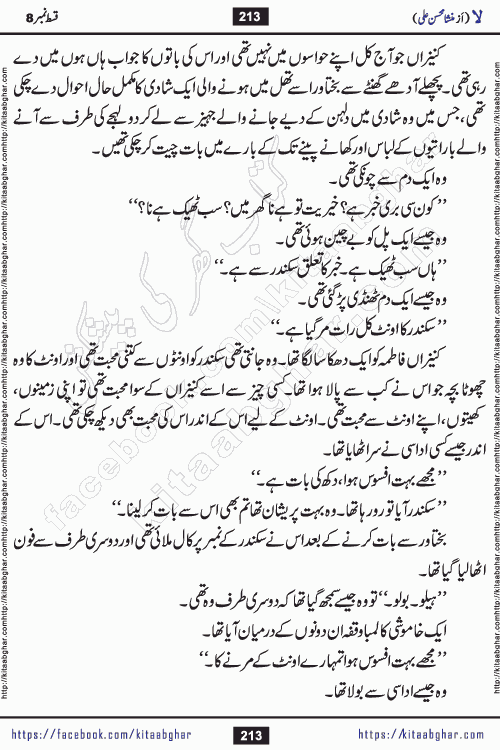 لا (از منشا محسن علی) 213 قسط نمبر 8
کنیزاں جو آج کل اپنے حواسوں میں نہیں تھی اور اس کی باتوں کا جواب ہاں ہوں میں دے
رہی تھی۔ پچھلے آدھے گھنٹے سے بختاور اسے تھل میں ہونے والی ایک شادی کا مکمل حال احوال دے چکی
تھی، جس میں وہ شادی میں دلہن کے دیے جانے والے جہیز سے لے کر دولہے کی طرف سے آنے
والے باراتیوں کے لباس اور کھانے پینے تک کے بارے میں بات چیت کر چکی تھیں۔
وہ ایک دم سے چونکی تھی۔
”کون سی بری خبر ہے؟ خیریت تو ہے نا گھر میں؟ سب ٹھیک ہے نا؟“
وہ جیسے ایک پل کو بے چین ہوئی تھی۔
”ہاں سب ٹھیک ہے۔ خبر کا تعلق سکندر سے ہے۔“
وہ جیسے ایک دم ٹھنڈی پڑ گئی تھی۔
”سکندر کا اونٹ کل رات مر گیا ہے۔“
کنیزاں فاطمہ کو ایک دھکا سا لگا تھا۔ وہ جانتی تھی سکندر کو اونٹوں سے کتنی محبت تھی اور اونٹ کا وہ
چھوٹا بچہ جو اس نے کب سے پالا ہوا تھا۔ کسی چیز سے اسے کنیزاں کے سوا محبت تھی تو اپنی زمینوں،
کھیتوں، اپنے اونٹ سے محبت تھی۔ اونٹ کے لیے اس کے اندر اس کی محبت بھی دیکھ چکی تھی۔ اس کے
اندر جیسے کسی اداسی نے سر اٹھایا تھا۔
”مجھے بہت افسوس ہوا، دکھ کی بات ہے۔“
”سکندر آیا تو رو رہا تھا۔ وہ بہت پریشان تھا تم بھی اس سے بات کر لینا۔“
بختاور سے بات کرنے کے بعد اس نے سکندر کے نمبر پر کال ملائی تھی اور دوسری طرف سے فون
اٹھا لیا گیا تھا۔
”ہیلو۔ بولو۔“ تو وہ جیسے سمجھ گیا تھا کہ دوسری طرف وہ تھی۔
ایک خاموشی کا لمبا وقفہ ان دونوں کے درمیان آیا تھا۔
”مجھے بہت افسوس ہوا تمہارے اونٹ کے مرنے کا۔“
وہ جیسے اداسی سے بولا تھا۔
https://facebook.com/kitaabghar 213 https://kitaabghar.com